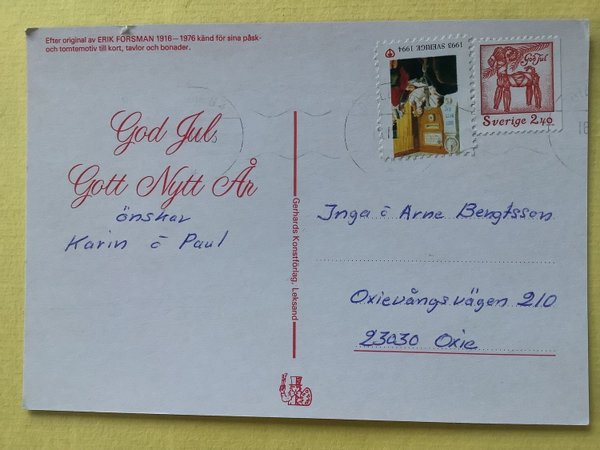 Efter original av ERIK FORSMAN 1916—1976 känd för sina påsk-
och tomtemotiv till kort, tavlor och bonader.
1993 SVERIGE 1994
God Jul
Sverige 2,40
God Jul
Gott Nytt År
önskar
Karin o Paul
Gerhards Konstförlag, Leksand
Inga o Arne Bengtsson
Oxievångsvägen 210
23030 Oxie